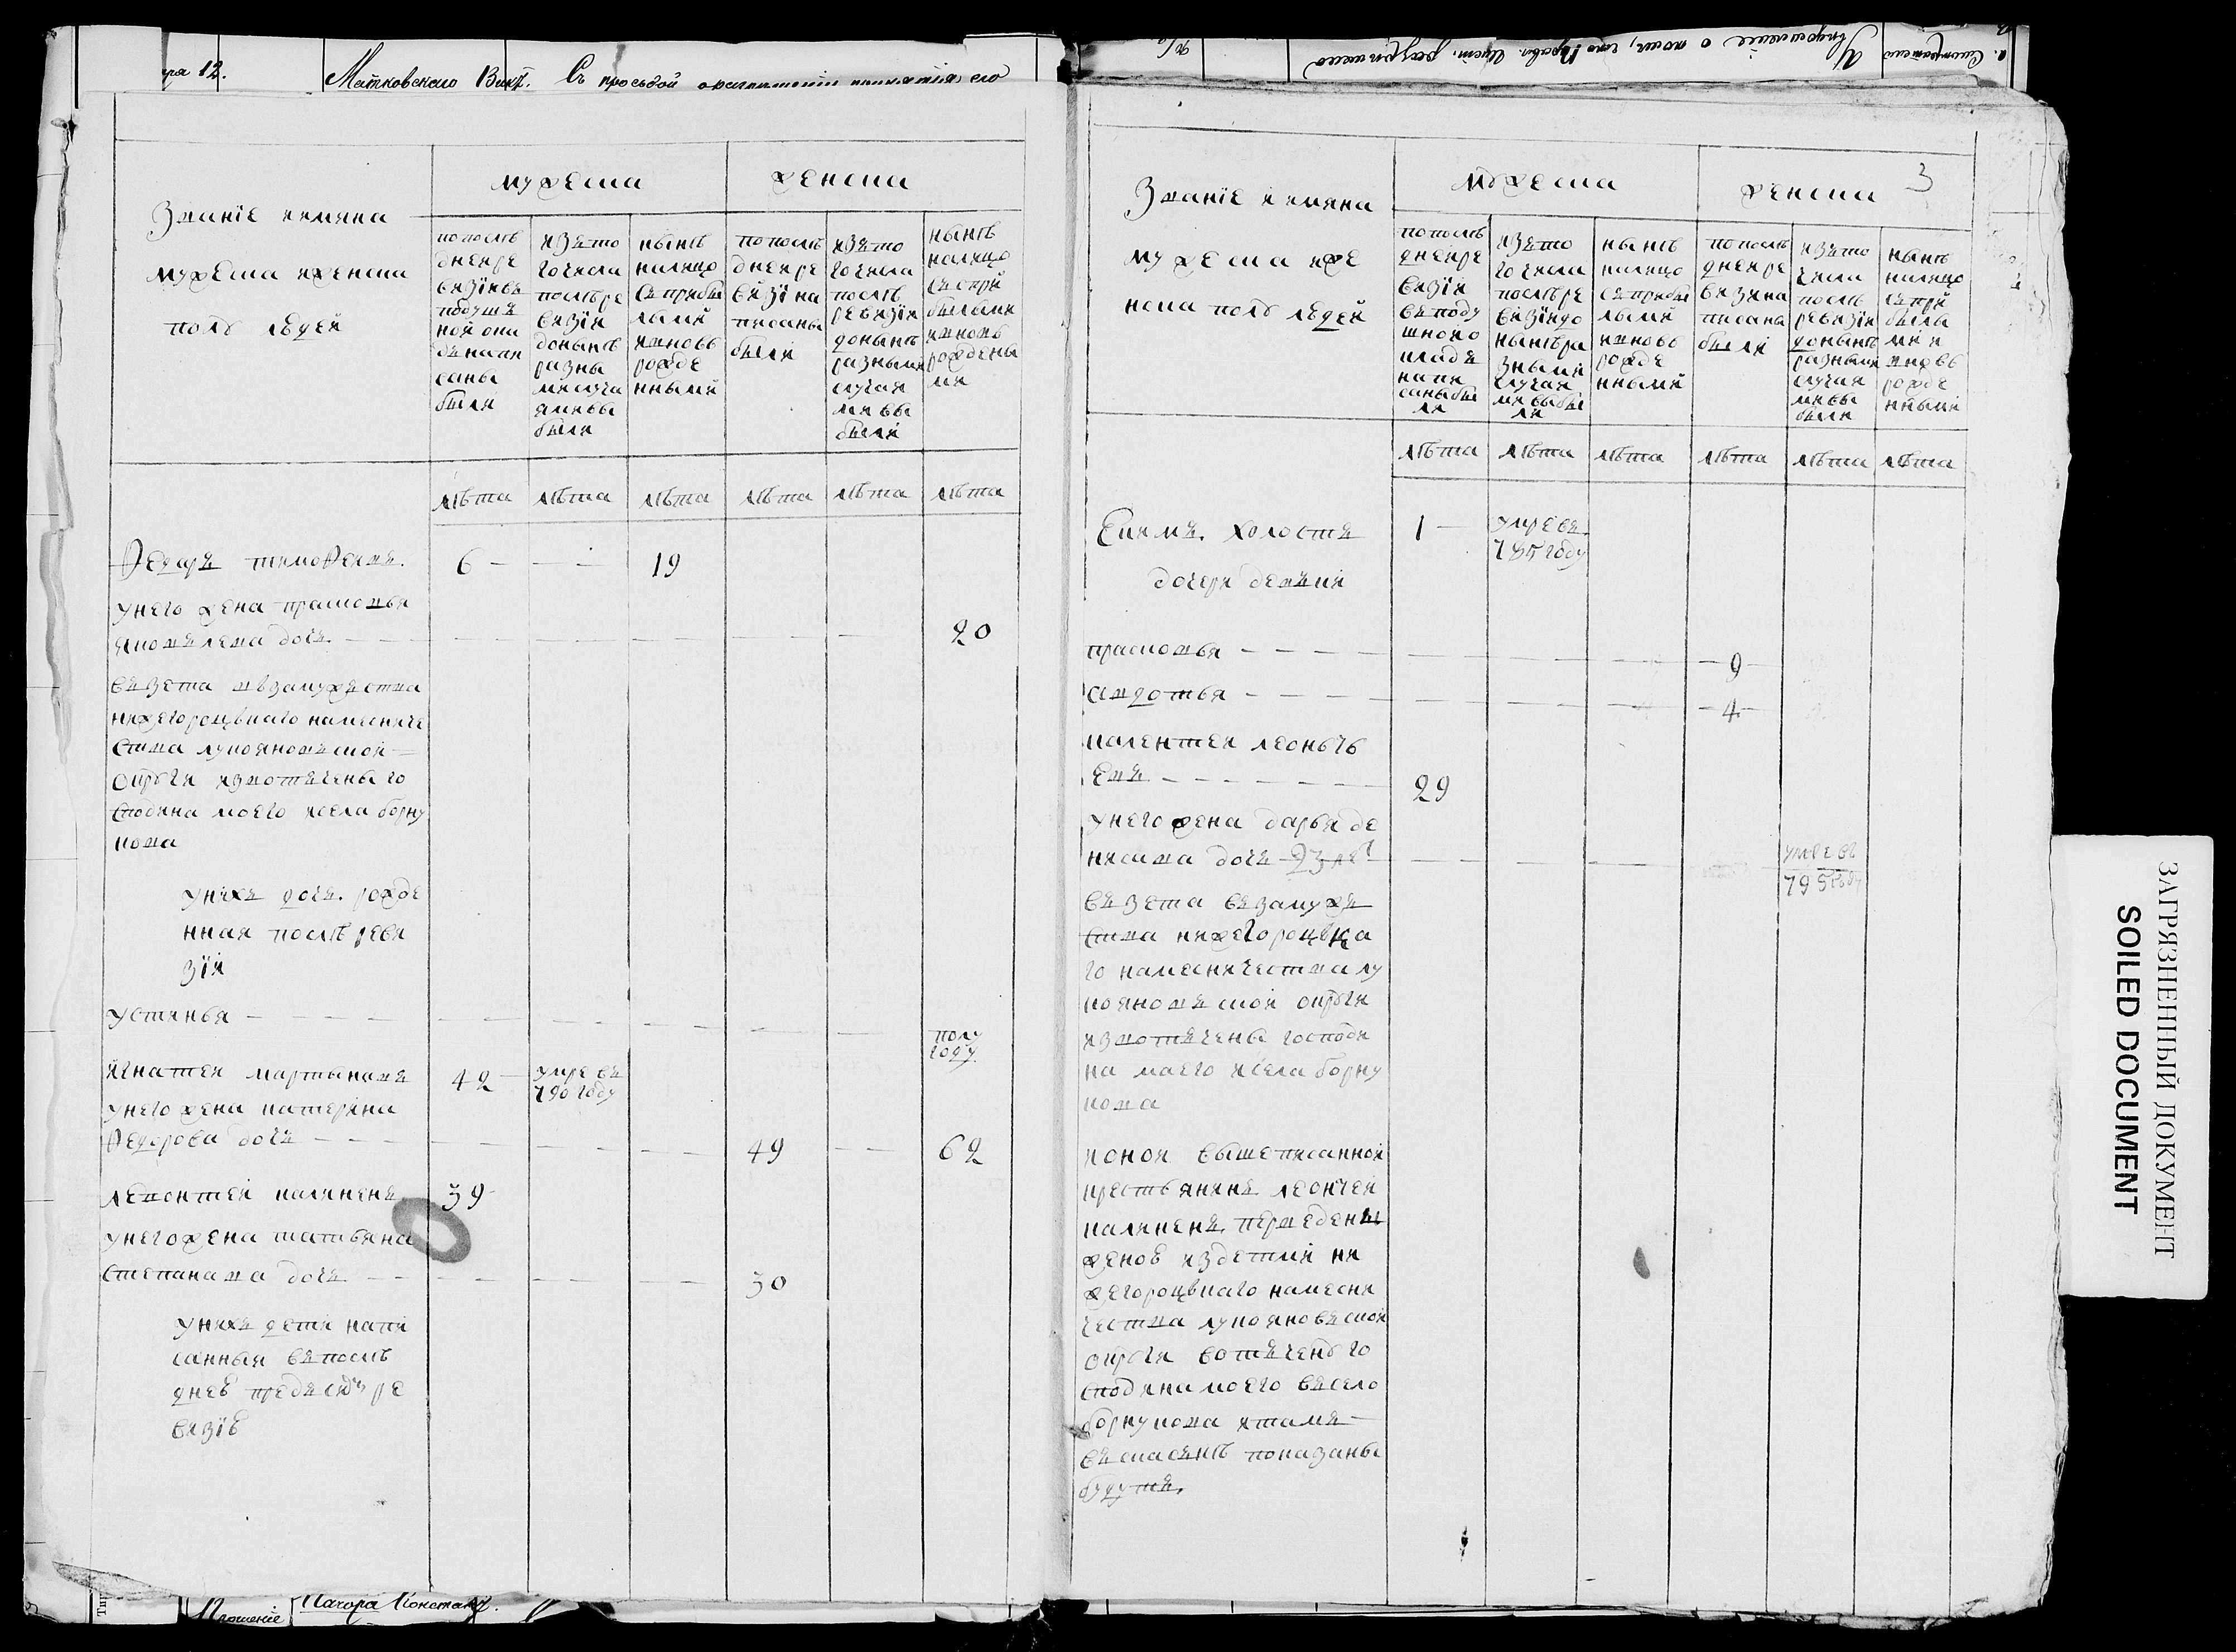 ра 12.
Матковского Викт. Съ просьбой
Званiе иимяна
мужеска иженска
полу людей
мужеска
женска
попослѣ
дней ре
визiивъ
подуш
ной окл
дъ напи
саны
были
изъто
го числа
послѣре
визiи
донынѣ
разны
мислуча
ямивы
были
нынѣ
налицо
съ прибы
лыми
ивновь
рожде
нными
попослѣ
дней ре
визiи на
писаны
были
изъто
го числа
послѣ
ревизiи
донынѣ
разными
случая
мивы
были
нынѣ
налицо
съ при
былыми
ивновь
рождены
ми
лѣта лѣта лѣта лѣта лѣта лѣта
Ѳедоръ тимоѲеивъ. 6 — — 19
унего жена прасковья
яковлева дочь — 20
взета взамужства
нижегородцкаго наместниче
ства лукояновской
округи извотчены го
сподина моего исела борну
кова
унихъ дочь. рожде
нная послѣ реви
зiи
устинья — полу
году
игнатей мартыновъ 42 умре въ
790 году
унего жена катерина
Ѳедорова дочь — 49 — 62
левонтей калининъ 39
унегожена татьяна
степанава дочь — 30
унихъ дети напи
санныя въпослѣ
дней предъ симъ ре
визiе
Званiе иимяна
мужеска иже
нска полу людей
мужеска
женска 3
попослѣ
дней ре
визiи
въ поду
шного
кладъ
напи
саныбы
ли
изъто
го числа
послѣ ре
визiидо
нынѣра
зными
случая
ми выбы
ли
нынѣ
налицо
съ прибы
лыми
ивновь
рожде
нными
попослѣ
дней ре
визiина
писана
были
изъто
числа
послѣ
ревизiи
донынѣ
разными
случая
мивы
были
нынѣ
налицо
съ при
былы
ми и
вновь
рожде
нными
лѣта лѣта лѣта лѣта лѣта лѣта
Екимъ. холостъ 1 — умре въ
785 году
дочери девки
прасковья — 9
авдотья — 4
калентей леонть
евъ — 29
унего жена дарья де
нисава дочь 23 лѣт — умре въ
795 году
взета взамуж
ства нижегородцка
го наместничества лу
кояновской округи
извотчены господи
на маего исела борну
кова
коной вышеписанной
крестьянинъ леонтей
калининъ. переведенъ
женой издетми ни
жегородцкаго намесни
чества лукояновской
округи вотчену го
сподина моего въсело
борнукова итамъ
въсказкѣ показаны
будутъ.
ЗАГРЯЗНЕННЫЙ ДОКУМЕНТ
SOILED DOCUMENT
Прошенiе